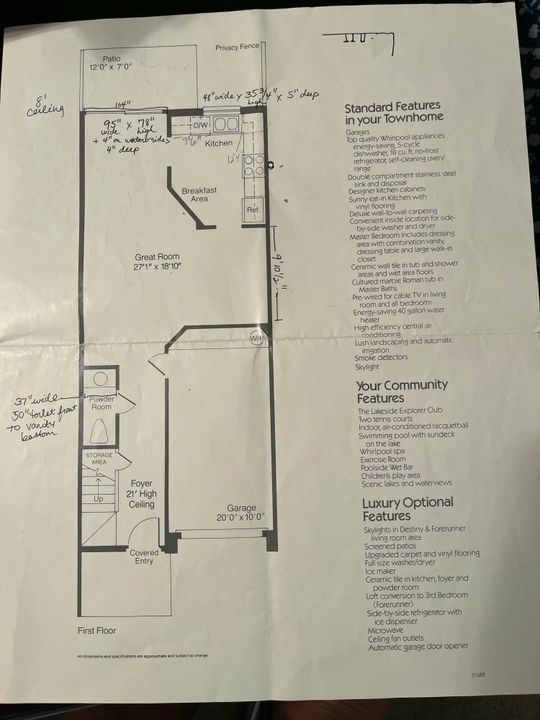 Privacy Fence
Patio
12'0" x 7'0"
8'
ceiling
104"
48" wide x 35 3/4" x 5" deep
high
95" x 78"
wide high
+ 4" on water sides
4" deep
D/W
Kitchen
Breakfast
Area
Ref.
9' 10 1/2"
Great Room
27'1" x 18'10"
WH
37" wide
50" toilet front
to vanity
bottom
Powder
Room
STORAGE
AREA
Up
Foyer
21' High
Ceiling
Garage
20'0" x 10'0"
Covered
Entry
First Floor
All dimensions and specifications are approximate and subject to change.
Standard Features
in your Townhome
Garages
Top quality Whirlpool appliances
energy-saving, 5-cycle
dishwasher, 18 cu. ft. no-frost
refrigerator, self-cleaning oven/
range
Double compartment stainless steel
sink and disposal
Designer kitchen cabinets
Sunny eat-in Kitchen with
vinyl flooring
Deluxe wall-to-wall carpeting
Convenient inside location for side-
by-side washer and dryer
Master Bedroom includes dressing
area with combination vanity,
dressing table and large walk-in
closet
Ceramic wall tile in tub and shower
areas and wet area floors
Cultured marble Roman tub in
Master Baths
Pre-wired for cable TV in living
room and all bedrooms
Energy-saving 40 gallon water
heater
High efficiency central air
conditioning
Lush landscaping and automatic
irrigation
Smoke detectors
Skylight
Your Community
Features
The Lakeside Explorer Club
Two tennis courts
Indoor, air-conditioned racquetball
Swimming pool with sundeck
on the lake
Whirlpool spa
Exercise Room
Poolside Wet Bar
Children's play area
Scenic lakes and waterviews
Luxury Optional
Features
Skylights in Destiny & Forerunner
living room area
Screened patios
Upgraded carpet and vinyl flooring
Full size washer/dryer
Ice maker
Ceramic tile in kitchen, foyer and
powder room
Loft conversion to 3rd Bedroom
(Forerunner)
Side-by-side refrigerator with
ice dispenser
Microwave
Ceiling fan outlets
Automatic garage door opener